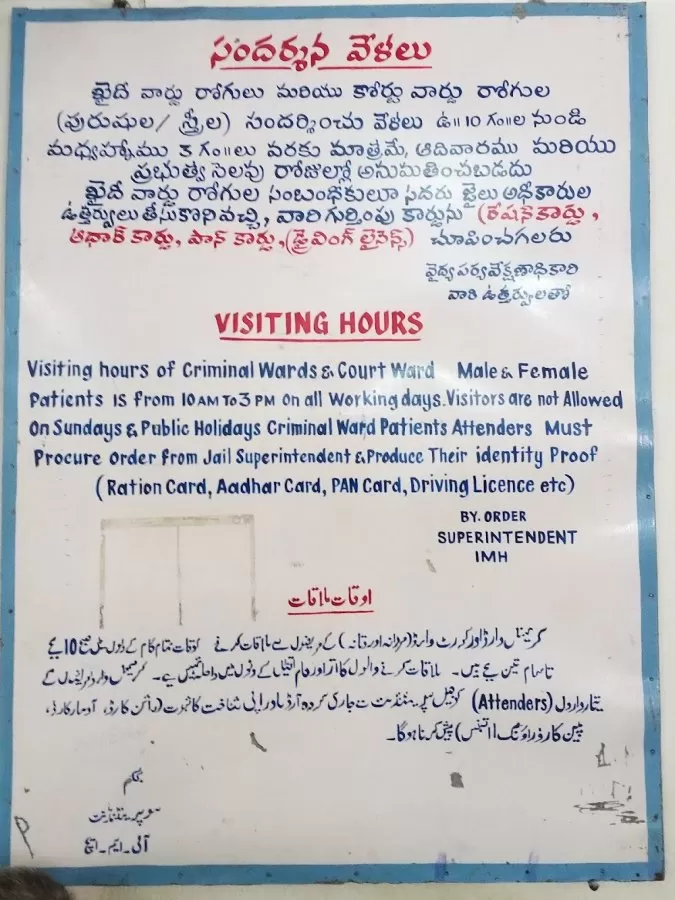 సందర్శన వేళలు
ఖైదీ వార్డు రోగులు మరియు కోర్టు వార్డు రోగుల
(పురుషుల/ స్త్రీల) సందర్శించు వేళలు ఉ॥ 10 గం॥ల నుండి
మధ్యహ్నము 3 గం॥లు వరకు మాత్రమే, ఆదివారము మరియు
ప్రభుత్వ సెలవు రోజుల్లో అనుమతించబడదు
ఖైదీ వార్డు రోగుల సంబంధికులూ సదరు జైలు అధికారుల
ఉత్తర్వులు తీసుకొనివచ్చి, వారి గుర్తింపు కార్డును (రేషన్ కార్డు,
ఆధార్ కార్డు, పాన్ కార్డు, (డ్రైవింగ్ లైసెన్స్) చూపించగలరు
వైద్య పర్యవేక్షణాధికారి
వారి ఉత్తర్వులతో
VISITING HOURS
Visiting hours of Criminal Wards & Court Ward Male & Female
Patients is from 10 AM To 3 PM on all Working days. Visitors are not Allowed
on Sundays & Public Holidays Criminal Ward Patients Attenders Must
Procure order from Jail Superintendent & Produce Their identity Proof
(Ration Card, Aadhar Card, PAN Card, Driving Licence etc)
BY. ORDER
SUPERINTENDENT
IMH
اوقات ملاقات
کریمنل وارڈ اور کورٹ وارڈ (مردانہ اور زنانہ) کے مریضوں سے ملاقات کرنے اوقات تمام کام کے دنوں میں صبح 10 بجے
تا شام تین بجے ہیں۔ ملاقات کرنے والوں کا اتوار اور عام تعطیل کے دنوں میں داخلہ نہیں ہے۔ کریمنل وارڈ مریضوں کے
تیمارداروں (Attenders) کو جیل سپرنٹنڈنٹ سے جاری کردہ آرڈر اور اپنی شناخت کا ثبوت (راشن کارڈ، آدھار کارڈ،
پین کارڈ، ڈرائیونگ لائسنس) پیش کرنا ہوگا۔
بحکم
سوپرنٹنڈنٹ
آئی۔ایم۔ایچ